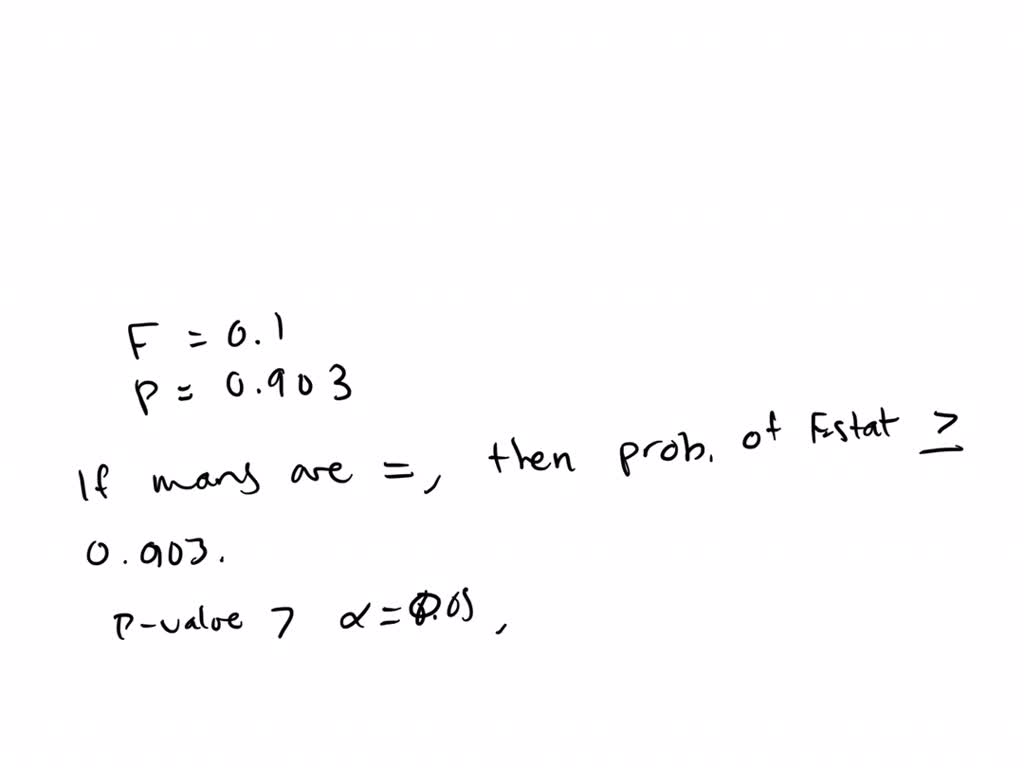 F = 0.1
P = 0.903
If mans are =, then prob. of F-stat ≥
0.903.
P-value > α = 0.05,